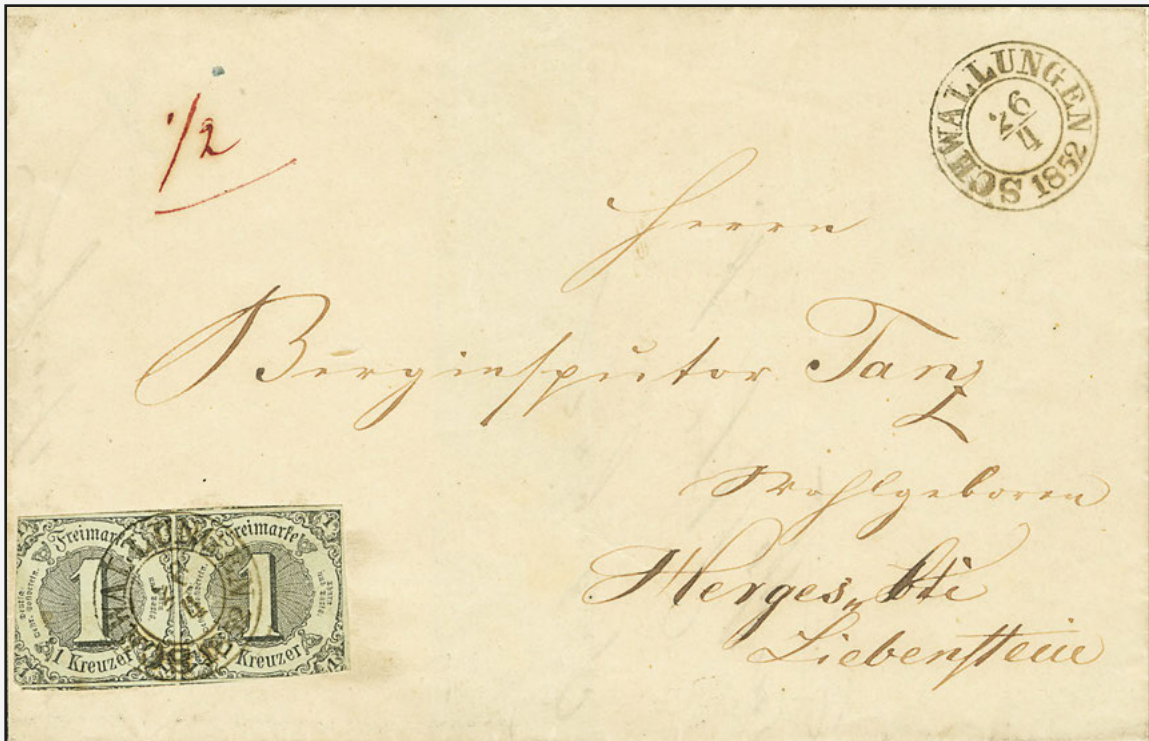 1/2
SCHWALLUNGEN 1852
26/4
Herrn
Berginspector Tanz
Wohlgeboren
Herges, bei
Liebenstein
Freimarke Freimarke
1 1
1 Kreuzer 1 Kreuzer
SCHWALLUNGEN